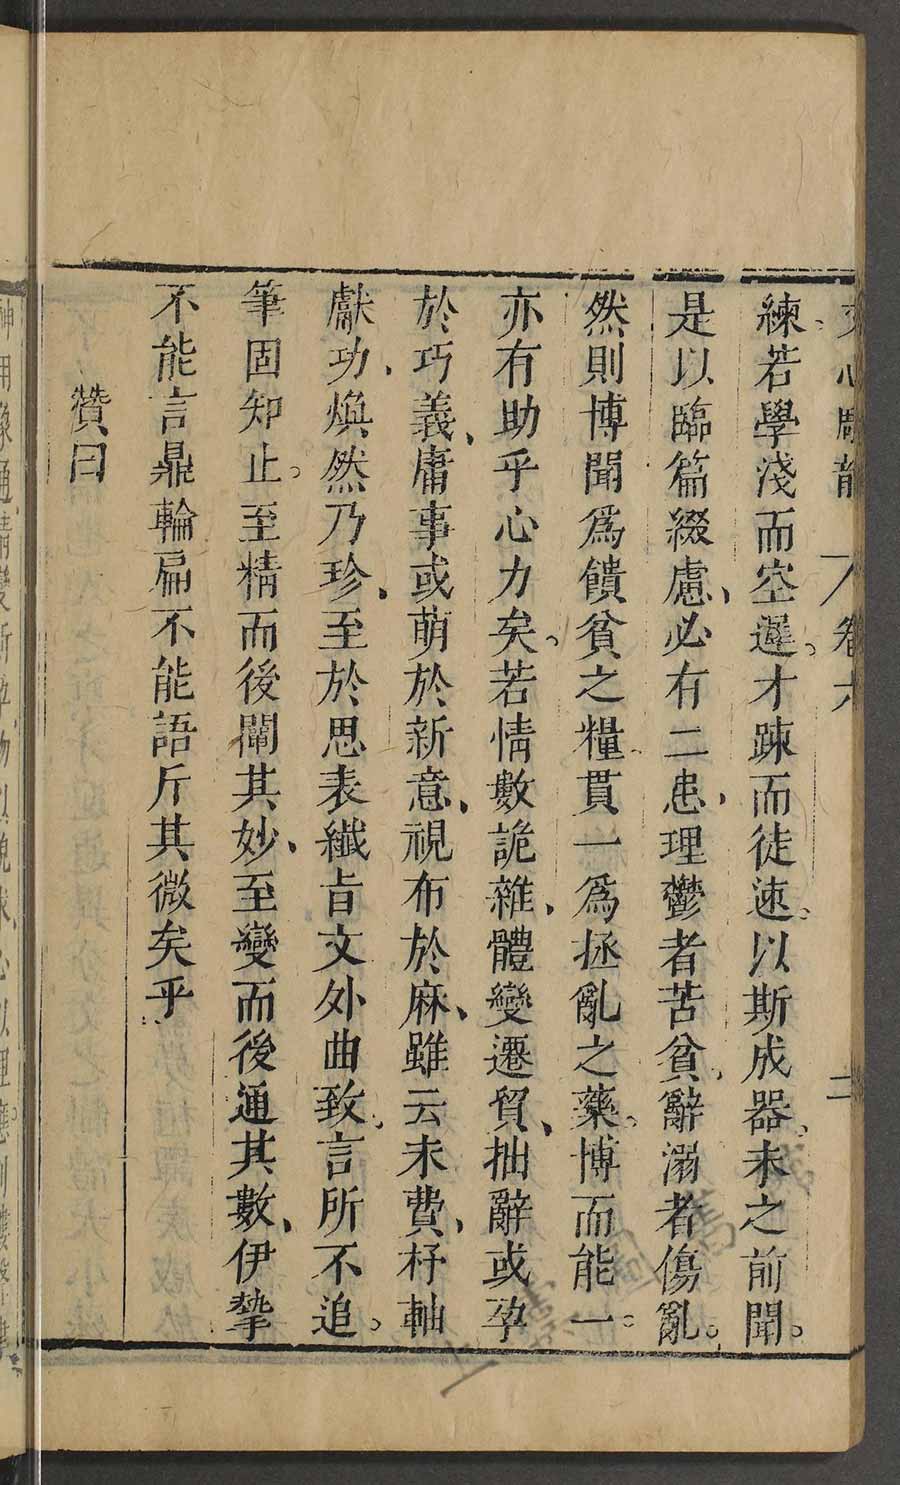 文心雕龍 卷六 二
練若學淺而空遲才踈而徒速以斯成器未之前聞
是以臨篇綴慮必有二患理鬱者苦貧辭溺者傷亂
然則博聞爲饋貧之糧貫一爲拯亂之藥博而能一
亦有助乎心力矣若情數詭雜體變遷貿拙辭或孕
於巧義庸事或萌於新意視布於麻雖云未費杼軸
獻功煥然乃珍至於思表纖旨文外曲致言所不追
筆固知止至精而後闡其妙至變而後通其數伊摯
不能言鼎輪扁不能語斤其微矣乎
贊曰
神用象通情變所孕物以貌求心以理應刻鏤聲律